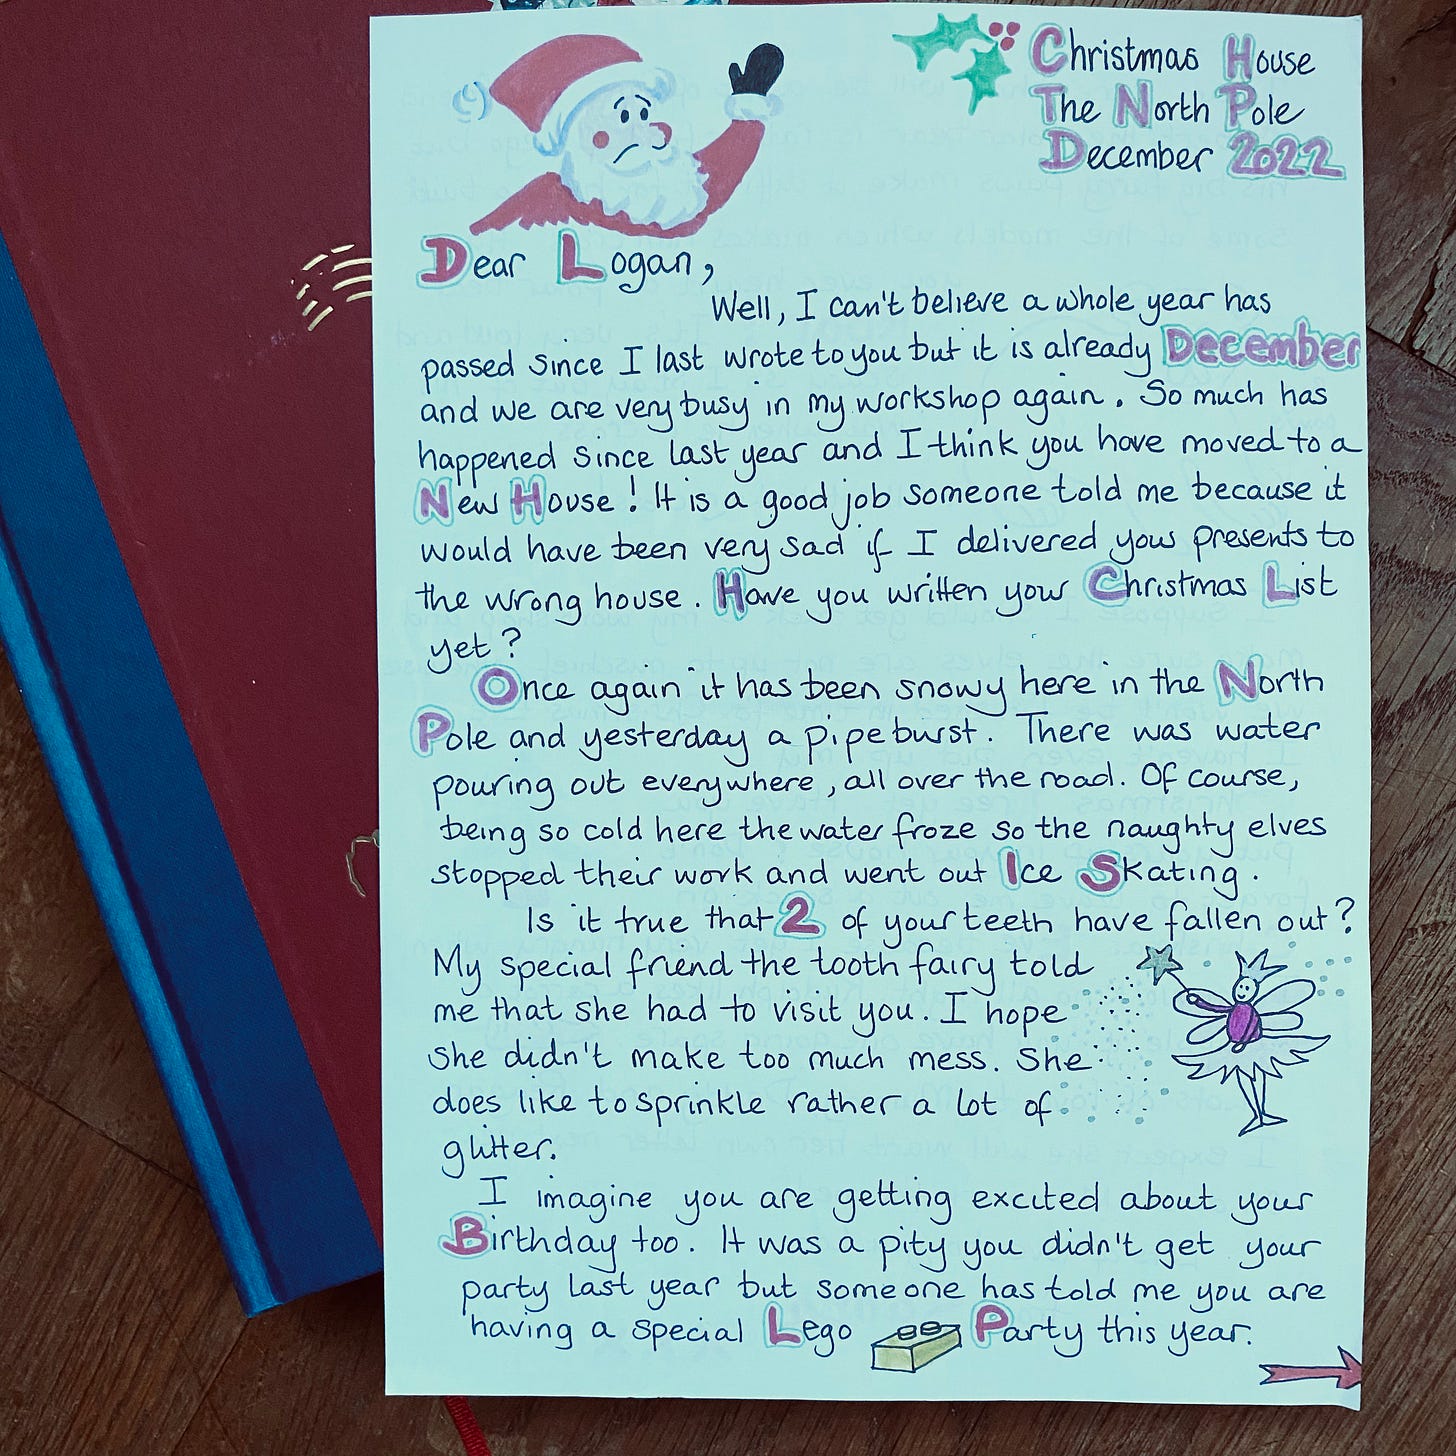 Christmas House
The North Pole
December 2022
Dear Logan,
Well, I can't believe a whole year has
passed since I last wrote to you but it is already December
and we are very busy in my workshop again. So much has
happened since last year and I think you have moved to a
New House! It is a good job someone told me because it
would have been very sad if I delivered your presents to
the wrong house. Have you written your Christmas List
yet?
Once again it has been snowy here in the North
Pole and yesterday a pipe burst. There was water
pouring out everywhere, all over the road. Of course,
being so cold here the water froze so the naughty elves
stopped their work and went out Ice Skating.
Is it true that 2 of your teeth have fallen out?
My special friend the tooth fairy told
me that she had to visit you. I hope
she didn't make too much mess. She
does like to sprinkle rather a lot of
glitter.
I imagine you are getting excited about your
Birthday too. It was a pity you didn't get your
party last year but someone has told me you are
having a special Lego Party this year.